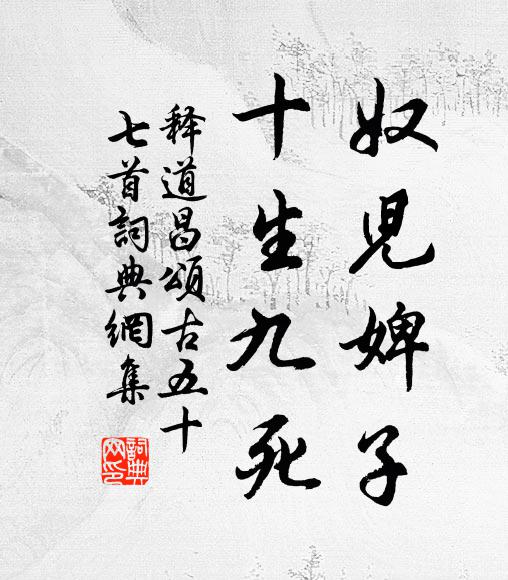 奴児婢子
十生九死
释道昌頌古五十
七首詞典網集
詞典网印